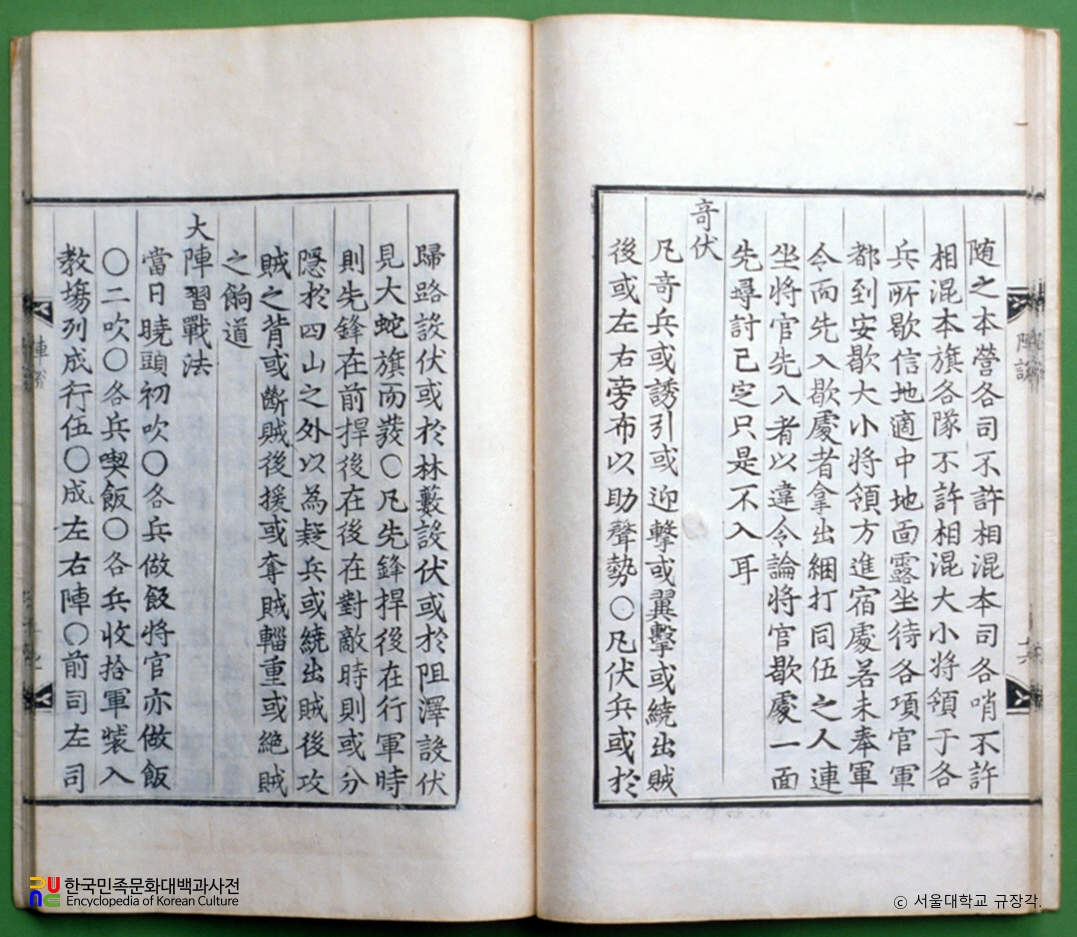 随之本營各司不許相混本司各哨不許
相混本旗各隊不許相混大小將領于各
兵所歇信地適中地面露坐待各項官軍
都到安歇大小將領方進宿處若未奉軍
令而先入歇處者拿出綑打同伍之人連
坐將官先入者以違令論將官歇處一面
先尋討已定只是不入耳
奇伏
凡奇兵或誘引或迎擊或翼擊或繞出賊
後或左右旁布以助聲勢〇凡伏兵或於
歸路設伏或於林藪設伏或於阻澤設伏
見大蛇旗而發〇凡先鋒捍後在行軍時
則先鋒在前捍後在後在對敵時則或分
隱於四山之外以為疑兵或繞出賊後攻
賊之背或斷賊後援或奪賊輜重或絕賊
之餉道
大陣習戰法
當日曉頭初吹〇各兵做飯將官亦做飯
〇二吹〇各兵喫飯〇各兵收拾軍裝入
教塲列成行伍〇成左右陣〇前司左司
한국민족문화대백과사전
Encyclopedia of Korean Culture
ⓒ 서울대학교 규장각.